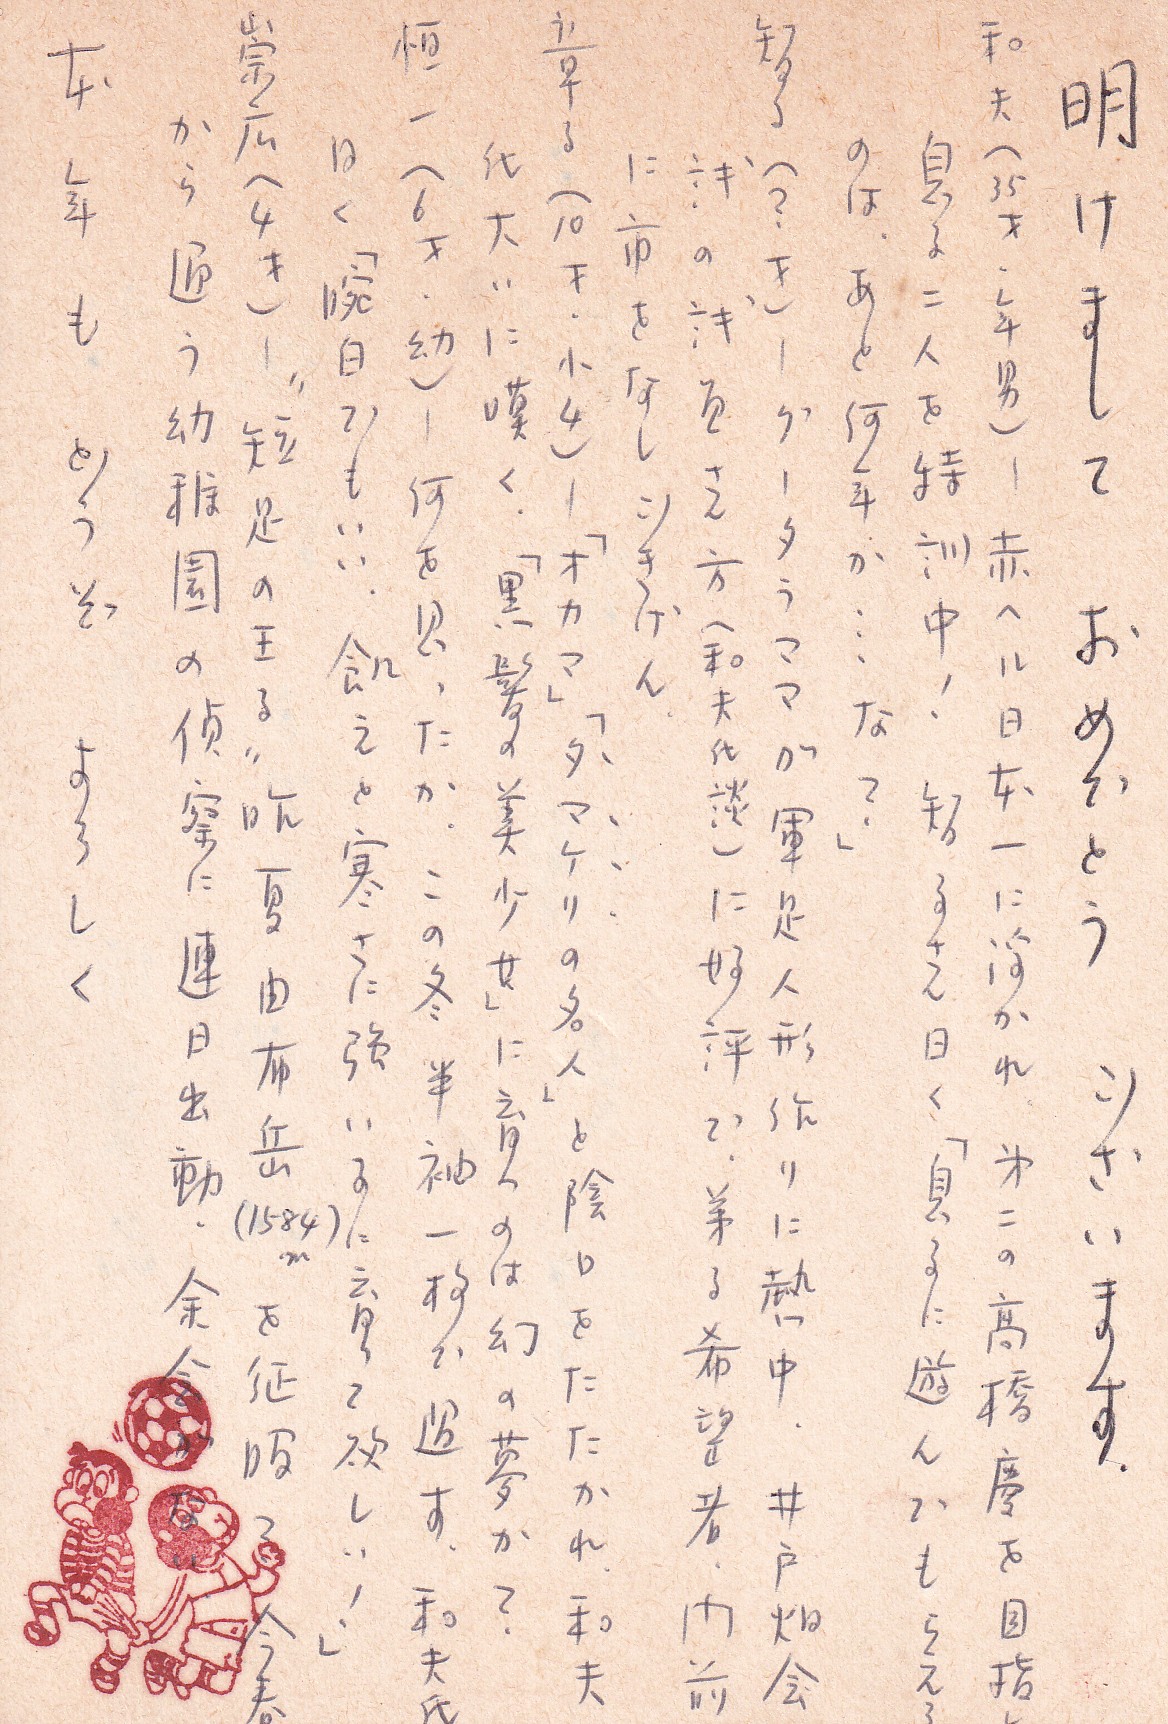 明けまして おめでとう ございます.
和夫(35才・年男)ー赤ヘル日本一に浮かれ 第二の高橋慶を目指し
息子二人を特訓中! 智子さん曰く「息子に遊んでもらえる
のは、あと何年か…なて?」
智子(?才)ーグータラママが軍足人形作りに熱中. 井戸畑会
議の議員さん方(和夫氏談)に好評で、弟子希望者、門前
に市をなし ごきげん.
章子(10才・小4)ー「オカマ」「タマケリの名人」と陰口をたたかれ、和夫
氏大いに嘆く.「黒髪の美少女」に育つのは幻の夢か?
恒一(6才・幼)ー何を思ったか、この冬半袖一枚で過す. 和夫氏
曰く「腕白でもいい、飢えと寒さに強い子に育って欲しい!」
崇広(4才)ー"短足の王子" 昨夏由布岳(1584m)を征服 今春
から通う幼稚園の偵察に連日出動. 余念がない
本年も どうぞ よろしく